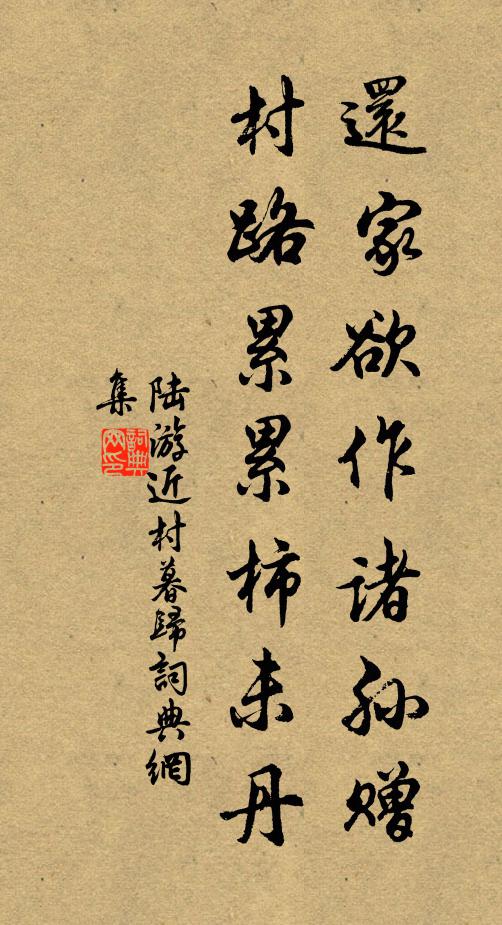 還家欲作諸孙赠
村路累累柿未丹
陆游近村暮歸詞典網
集
詞典
网印